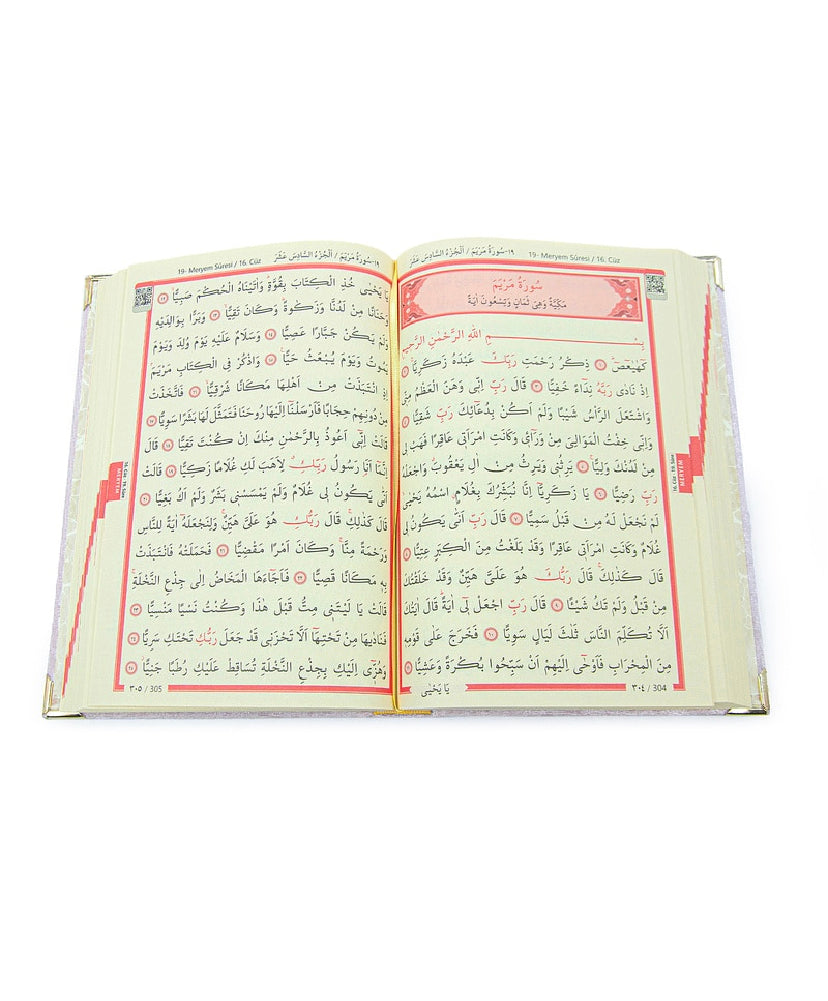 ١٩-سُورَةُ مَرْيَمَ / اَلْجُزْءُ السَّادِسَ عَشَرَ
19- Meryem Sûresi / 16. Cüz
سُورَةُ مَرْيَمَ
مَكِّيَّةٌ وَهِىَ ثَمَانٍ وَتِسْعُونَ اٰيَةً
بِسْمِ اللّٰهِ الرَّحْمٰنِ الرَّحٖيمِ
كٓهٰيٰعٓصٓ ﴿١﴾ ذِكْرُ رَحْمَتِ رَبِّكَ عَبْدَهُ زَكَرِيَّا ﴿٢﴾
اِذْ نَادٰى رَبَّهُ نِدَٓاءً خَفِيًّا ﴿٣﴾ قَالَ رَبِّ اِنّٖى وَهَنَ الْعَظْمُ مِنّٖى
وَاشْتَعَلَ الرَّأْسُ شَيْبًا وَلَمْ اَكُنْ بِدُعَٓائِكَ رَبِّ شَقِيًّا ﴿٤﴾
وَاِنّٖى خِفْتُ الْمَوَالِىَ مِنْ وَرَٓائٖى وَكَانَتِ امْرَاَتٖى عَاقِرًا فَهَبْ لٖى
مِنْ لَدُنْكَ وَلِيًّا ﴿٥﴾ يَرِثُنٖى وَيَرِثُ مِنْ اٰلِ يَعْقُوبَ وَاجْعَلْهُ
رَبِّ رَضِيًّا ﴿٦﴾ يَا زَكَرِيَّٓا اِنَّا نُبَشِّرُكَ بِغُلَامٍ اسْمُهُ يَحْيٰى
لَمْ نَجْعَلْ لَهُ مِنْ قَبْلُ سَمِيًّا ﴿٧﴾ قَالَ رَبِّ اَنّٰى يَكُونُ لٖى
غُلَامٌ وَكَانَتِ امْرَاَتٖى عَاقِرًا وَقَدْ بَلَغْتُ مِنَ الْكِبَرِ عِتِيًّا ﴿٨﴾
قَالَ كَذٰلِكَ قَالَ رَبُّكَ هُوَ عَلَىَّ هَيِّنٌ وَقَدْ خَلَقْتُكَ
مِنْ قَبْلُ وَلَمْ تَكُ شَيْـًٔا ﴿٩﴾ قَالَ رَبِّ اجْعَلْ لٖٓى اٰيَةً قَالَ اٰيَتُكَ
اَلَّا تُكَلِّمَ النَّاسَ ثَلٰثَ لَيَالٍ سَوِيًّا ﴿١٠﴾ فَخَرَجَ عَلٰى قَوْمِهٖ
مِنَ الْمِحْرَابِ فَاَوْحٰٓى اِلَيْهِمْ اَنْ سَبِّحُوا بُكْرَةً وَعَشِيًّا ﴿١١﴾
يَا يَحْيٰى
٣٠٤ / 304
16. Cüz 19. Sûre
MERYEM
١٩-سُورَةُ مَرْيَمَ / اَلْجُزْءُ السَّادِسَ عَشَرَ
19- Meryem Sûresi / 16. Cüz
يَا يَحْيٰى خُذِ الْكِتَابَ بِقُوَّةٍ وَاٰتَيْنَاهُ الْحُكْمَ صَبِيًّا ﴿١٢﴾
وَحَنَانًا مِنْ لَدُنَّا وَزَكٰوةً وَكَانَ تَقِيًّا ﴿١٣﴾ وَبَرًّا بِوَالِدَيْهِ
وَلَمْ يَكُنْ جَبَّارًا عَصِيًّا ﴿١٤﴾ وَسَلَامٌ عَلَيْهِ يَوْمَ وُلِدَ وَيَوْمَ
يَمُوتُ وَيَوْمَ يُبْعَثُ حَيًّا ﴿١٥﴾ وَاذْكُرْ فِى الْكِتَابِ مَرْيَمَ
اِذِ انْتَبَذَتْ مِنْ اَهْلِهَا مَكَانًا شَرْقِيًّا ﴿١٦﴾ فَاتَّخَذَتْ
مِنْ دُونِهِمْ حِجَابًا فَاَرْسَلْنَٓا اِلَيْهَا رُوحَنَا فَتَمَثَّلَ لَهَا بَشَرًا سَوِيًّا ﴿١٧﴾
قَالَتْ اِنّٖٓى اَعُوذُ بِالرَّحْمٰنِ مِنْكَ اِنْ كُنْتَ تَقِيًّا ﴿١٨﴾ قَالَ
اِنَّمَٓا اَنَا رَسُولُ رَبِّكِ لِاَهَبَ لَكِ غُلَامًا زَكِيًّا ﴿١٩﴾ قَالَتْ
اَنّٰى يَكُونُ لٖى غُلَامٌ وَلَمْ يَمْسَسْنٖى بَشَرٌ وَلَمْ اَكُ بَغِيًّا ﴿٢٠﴾
قَالَ كَذٰلِكِ قَالَ رَبُّكِ هُوَ عَلَىَّ هَيِّنٌ وَلِنَجْعَلَهُٓ اٰيَةً لِلنَّاسِ
وَرَحْمَةً مِنَّا وَكَانَ اَمْرًا مَقْضِيًّا ﴿٢١﴾ فَحَمَلَتْهُ فَانْتَبَذَتْ
بِهٖ مَكَانًا قَصِيًّا ﴿٢٢﴾ فَاَجَٓاءَهَا الْمَخَاضُ اِلٰى جِذْعِ النَّخْلَةِ
قَالَتْ يَا لَيْتَنٖى مِتُّ قَبْلَ هٰذَا وَكُنْتُ نَسْيًا مَنْسِيًّا ﴿٢٣﴾
فَنَادٰيهَا مِنْ تَحْتِهَٓا اَلَّا تَحْزَنٖى قَدْ جَعَلَ رَبُّكِ تَحْتَكِ سَرِيًّا ﴿٢٤﴾
وَهُزّٖٓى اِلَيْكِ بِجِذْعِ النَّخْلَةِ تُسَاقِطْ عَلَيْكِ رُطَبًا جَنِيًّا ﴿٢٥﴾
٣٠٥ / 305
16. Cüz 19. Sûre
MERYEM